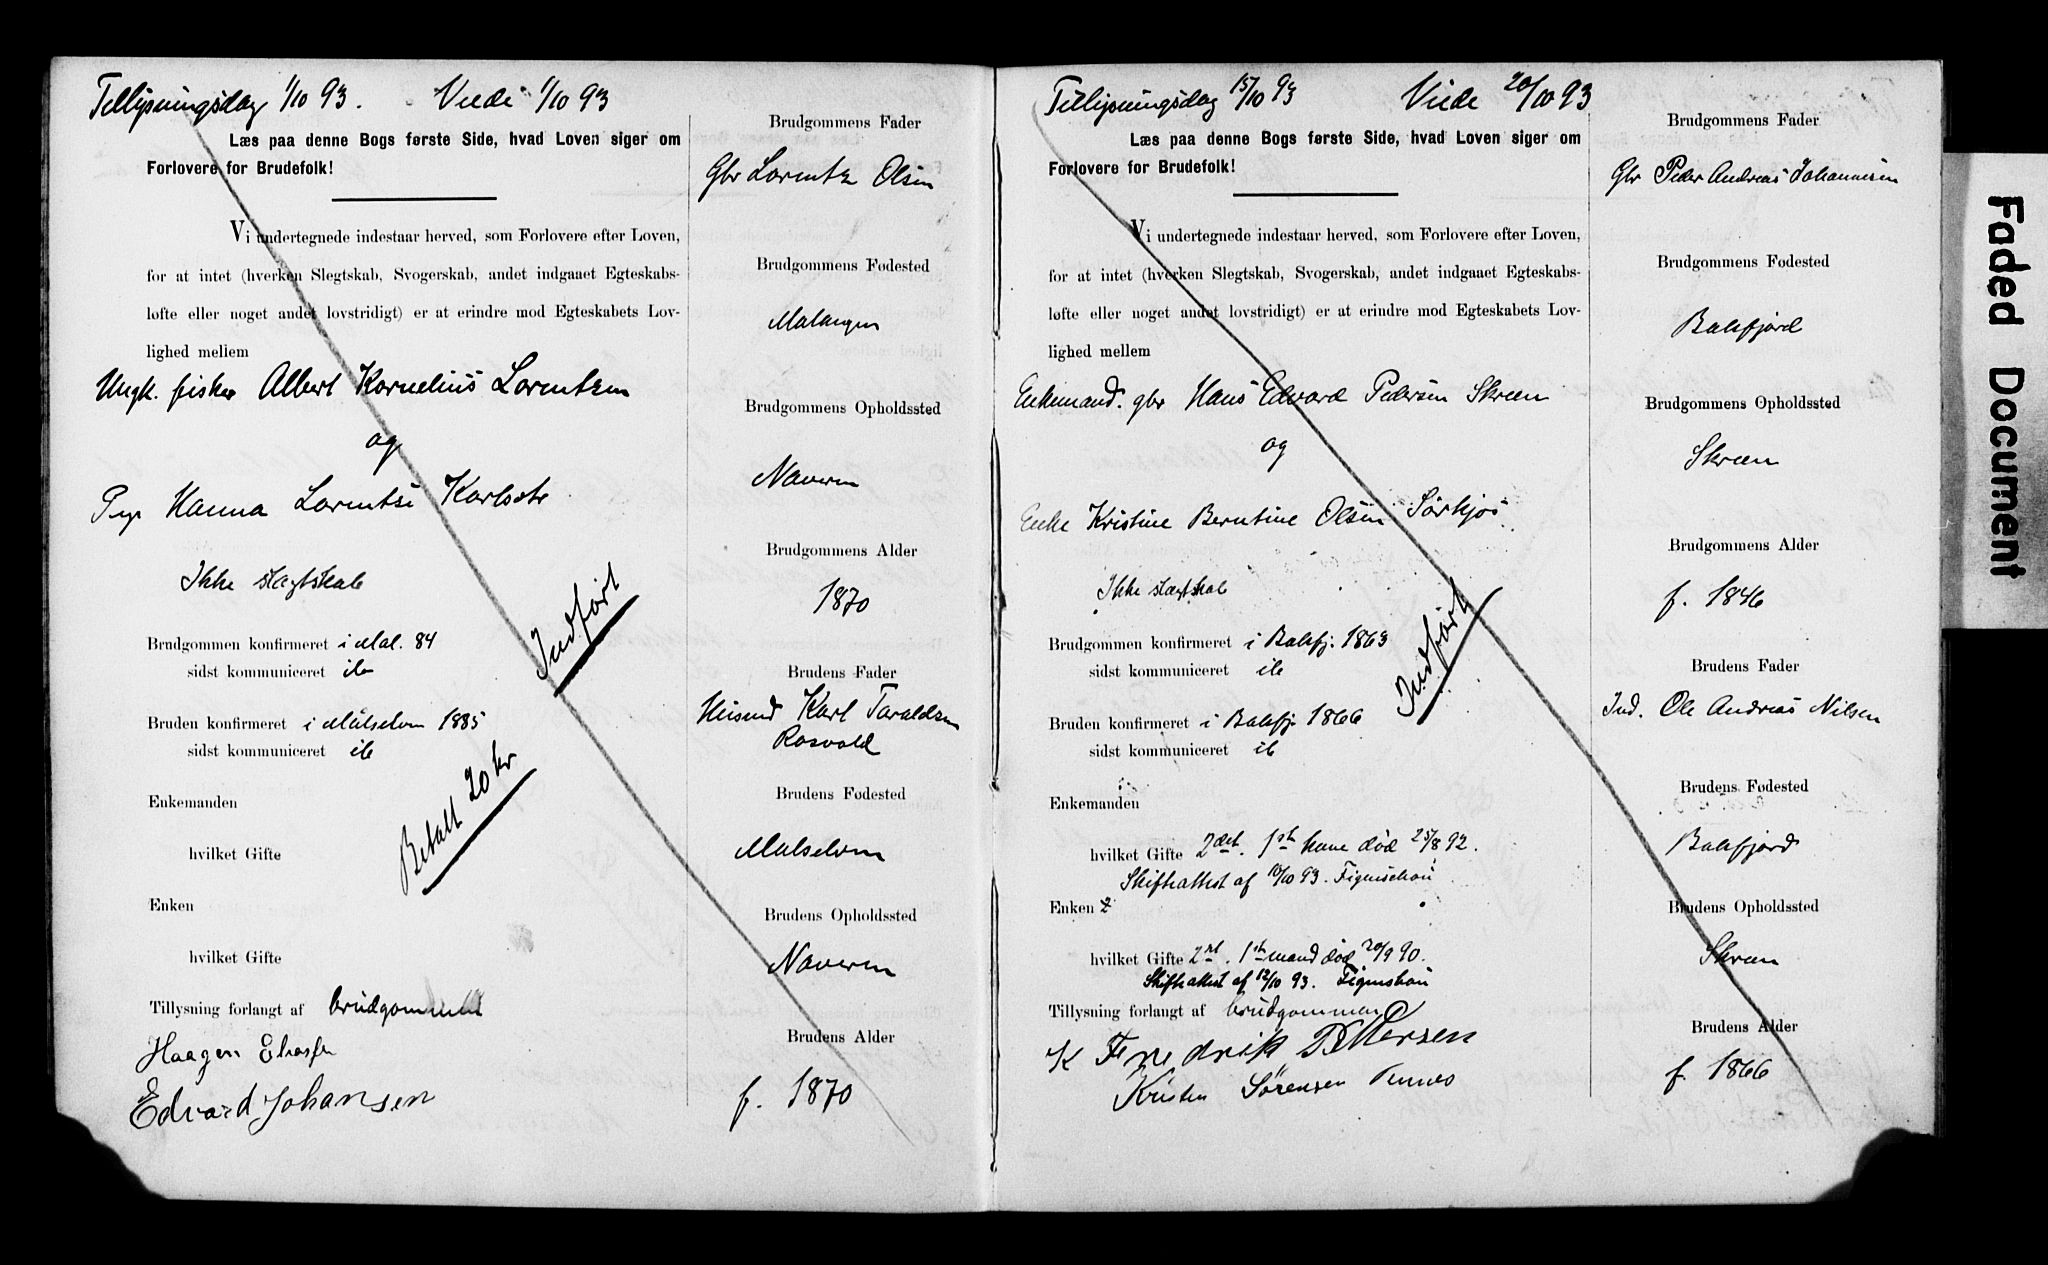 Tillysningsdag 1/10 93. Viede 1/10 93
Læs paa denne Bogs første Side, hvad Loven siger om
Forlovere for Brudefolk!
Vi undertegnede indestaar herved, som Forlovere efter Loven,
for at intet (hverken Slegtskab, Svogerskab, andet indgaaet Egteskabs-
løfte eller noget andet lovstridigt) er at erindre mod Egteskabets Lov-
lighed mellem
Ungk. fisker Albert Kornelius Lorentzen
og
Pige Hanna Lorentse Karlsdtr
Ikke slægtskab
Indført
Brudgommen konfirmeret i Mal. 84
sidst kommuniceret
Bruden konfirmeret i Målselven 1885
sidst kommuniceret
Betalt 20 kr
Enkemanden
hvilket Gifte
Enken
hvilket Gifte
Tillysning forlangt af brudgommen
Haagen
Edvard Johansen
Brudgommens Fader
Gbr Lorentz Olsen
Brudgommens Fødested
Malangen
Brudgommens Opholdssted
Naveren
Brudgommens Alder
1870
Brudens Fader
Karl Taraldsen
Rosvold
Brudens Fødested
Målselven
Brudens Opholdssted
Naveren
Brudens Alder
f. 1870
Tillysningsdag 15/10 93 Viede 20/10 93
Læs paa denne Bogs første Side, hvad Loven siger om
Forlovere for Brudefolk!
Vi undertegnede indestaar herved, som Forlovere efter Loven,
for at intet (hverken Slegtskab, Svogerskab, andet indgaaet Egteskabs-
løfte eller noget andet lovstridigt) er at erindre mod Egteskabets Lov-
lighed mellem
Enkemand. gbr Hans Edvard Pedersen Skreen
og
Enke Kristine Berntine Olsen Sørkjos
Ikke slægtskab
Indført
Brudgommen konfirmeret i Balsfj. 1863
sidst kommuniceret
Bruden konfirmeret i Balsfj 1866
sidst kommuniceret
Enkemanden
hvilket Gifte 2det. 1st kone død 25/8 92.
Skifteattest af 10/10 93.
Enken
hvilket Gifte 2et. 1st mand død 20/9 90.
Skifteattest af 12/10 93.
Tillysning forlangt af brudgommen
K Fredrik
Kristen Sørensen Tennes
Brudgommens Fader
Gbr Peder Andreas Johannesen
Brudgommens Fødested
Balsfjord
Brudgommens Opholdssted
Skreen
Brudgommens Alder
f. 1846
Brudens Fader
Ind. Ole Andreas Nilsen
Brudens Fødested
Balsfjord
Brudens Opholdssted
Skreen
Brudens Alder
f. 1866
Faded Document